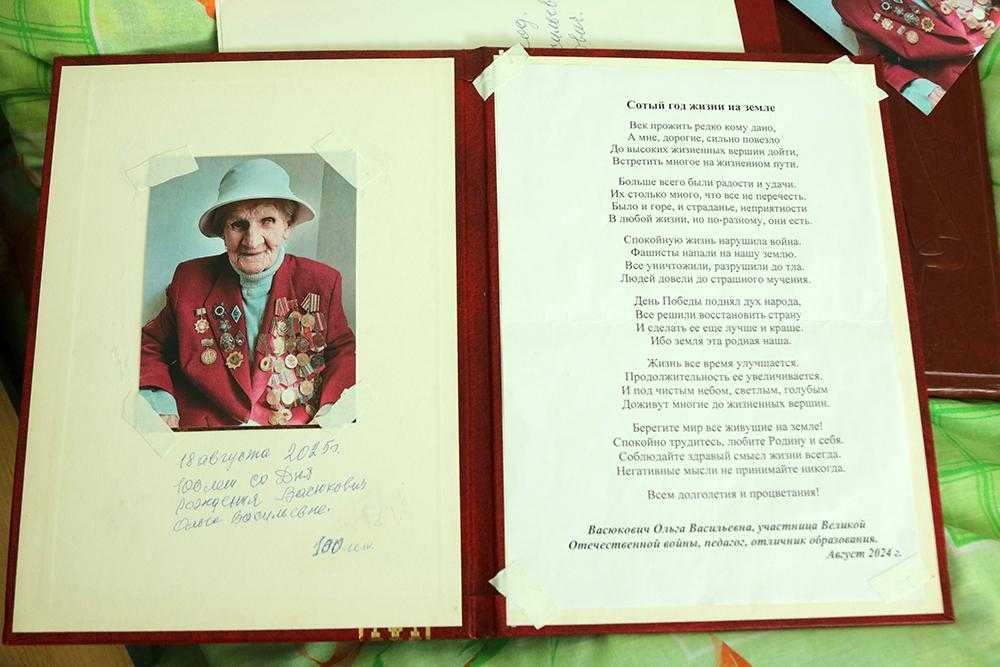 18 августа 2025г.
100 лет со Дня
рождения Васюкович
Ольге Васильевне.
100 лет.
Сотый год жизни на земле
Век прожить редко кому дано,
А мне, дорогие, сильно повезло
До высоких жизненных вершин дойти,
Встретить многое на жизненном пути.
Больше всего были радости и удачи.
Их столько много, что все не перечесть.
Было и горе, и страданье, неприятности
В любой жизни, но по-разному, они есть.
Спокойную жизнь нарушила война.
Фашисты напали на нашу землю.
Все уничтожили, разрушили до тла.
Людей довели до страшного мучения.
День Победы поднял дух народа,
Все решили восстановить страну
И сделать ее еще лучше и краше.
Ибо земля эта родная наша.
Жизнь все время улучшается.
Продолжительность ее увеличивается.
И под чистым небом, светлым, голубым
Доживут многие до жизненных вершин.
Берегите мир все живущие на земле!
Спокойно трудитесь, любите Родину и себя.
Соблюдайте здравый смысл жизни всегда.
Негативные мысли не принимайте никогда.
Всем долголетия и процветания!
Васюкович Ольга Васильевна, участница Великой
Отечественной войны, педагог, отличник образования.
Август 2024 г.